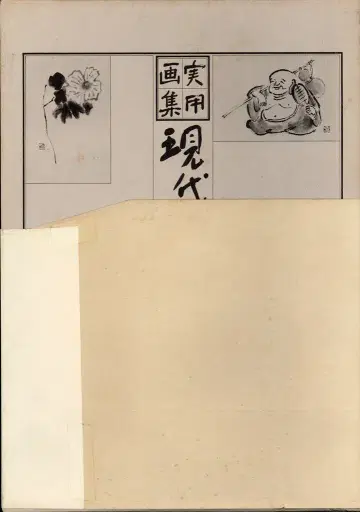 実用
画集
現代